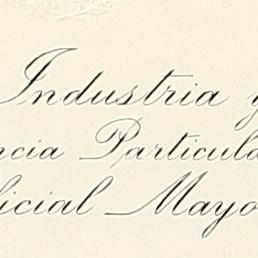 Industria y
ncia Particula
icial Mayo